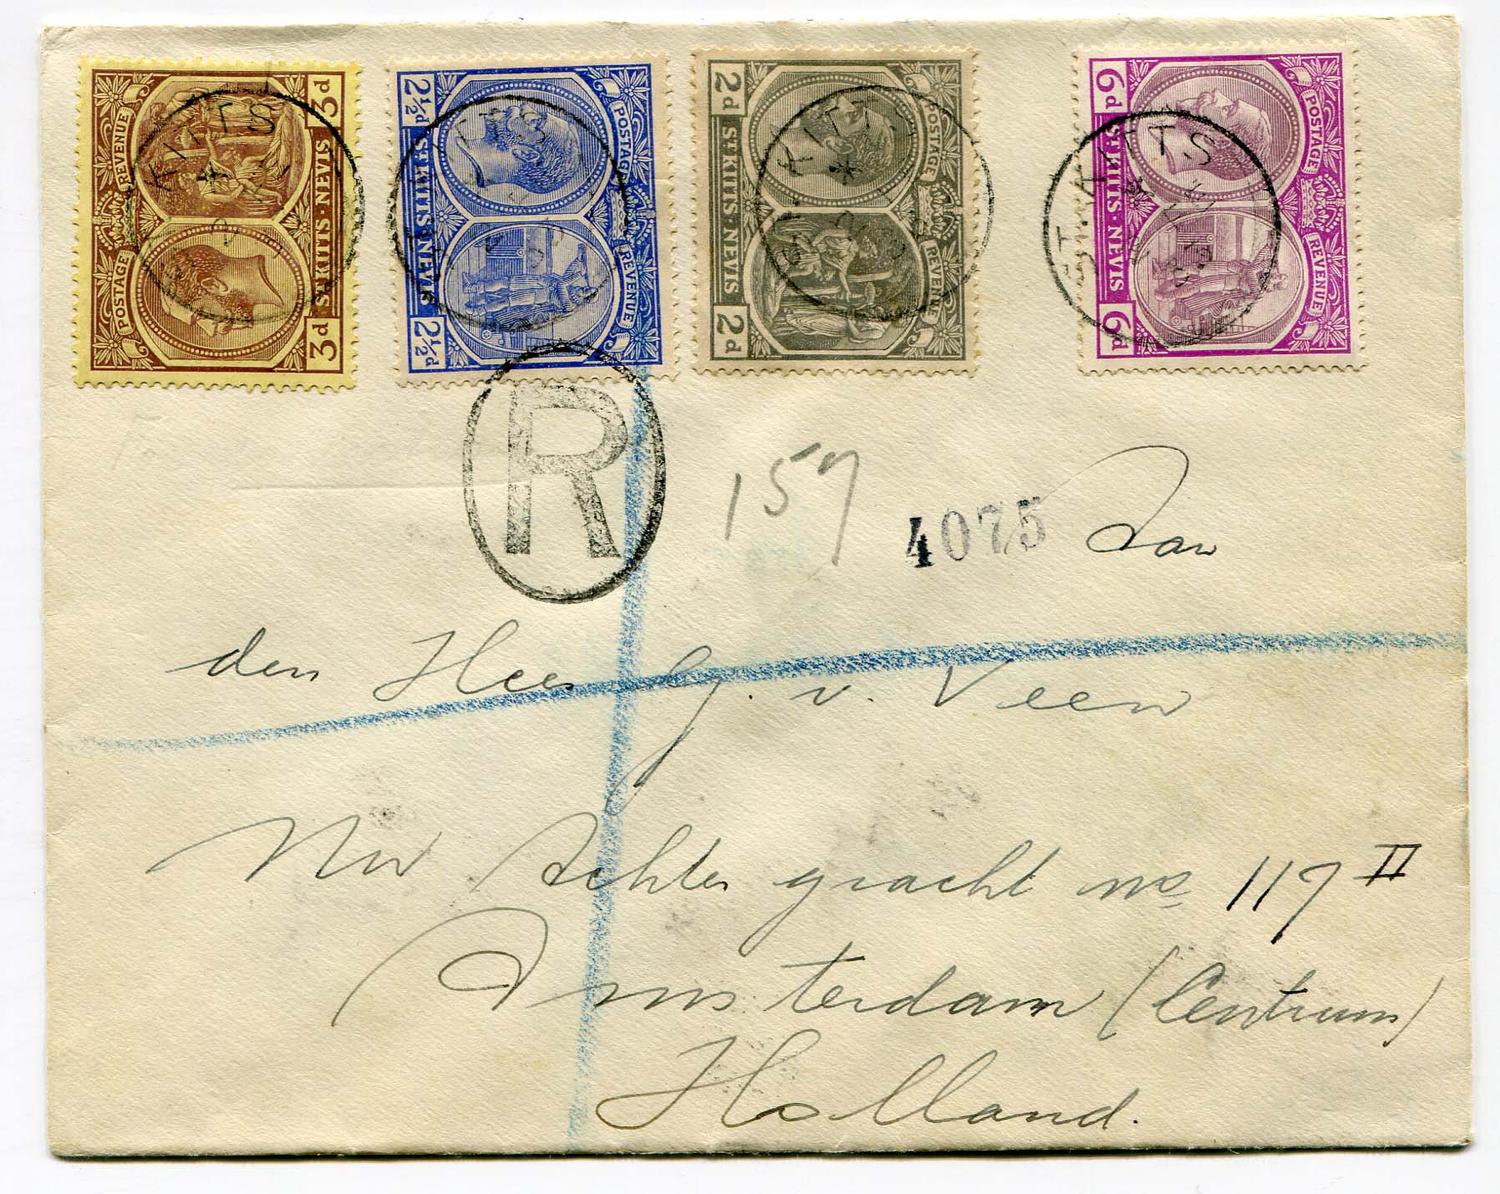 3d ST KITTS · NEVIS 3d
POSTAGE REVENUE
2½d ST KITTS · NEVIS 2½d
POSTAGE REVENUE
2d ST KITTS · NEVIS 2d
POSTAGE REVENUE
6d ST KITTS · NEVIS 6d
POSTAGE REVENUE
KITTS
ST. KITTS
R
157
4075
Aan
den Heer G. v. Veen
Nw Achter gracht no 117 II
Amsterdam (Centrum)
Holland.